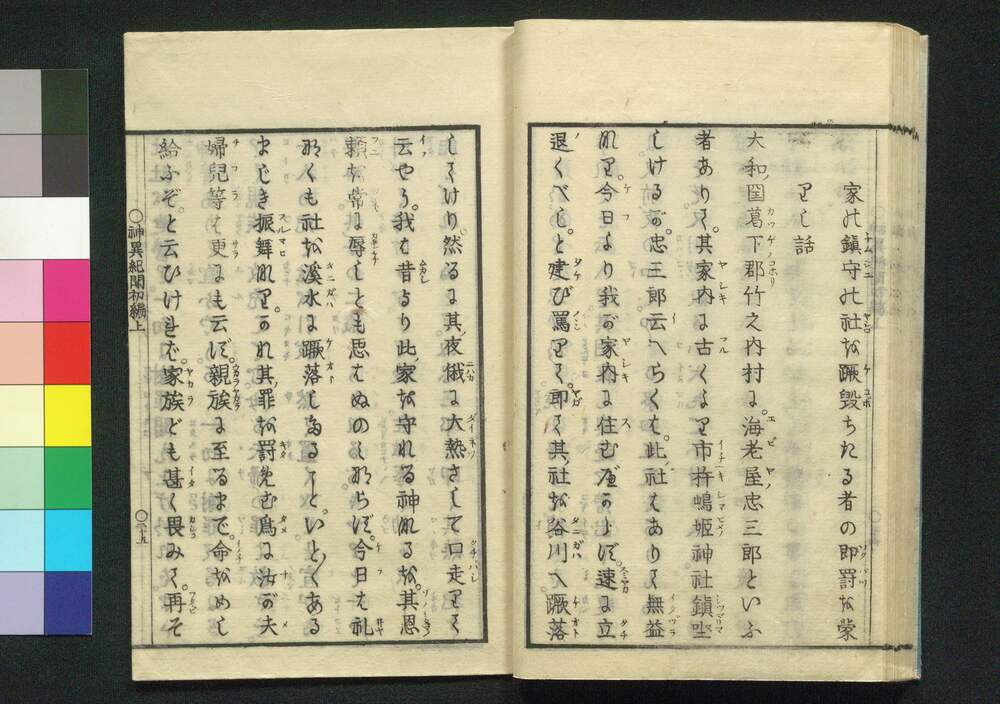 家の鎮守の社を蹶毀ちたる者の即罰を蒙
りし話
大和国葛下郡竹之内村に海老屋忠三郎といふ
者ありて其家内に古くより市杵嶋姫神社鎮坐
しけるが忠三郎云へらくは此社はありて無益
なり今日より我が家内に住む可からず速に立
退くべしと建び罵りて即て其社を谷川へ蹶落
してけり然るに其夜俄に大熱さして口走りて
云やう我は昔より此家を守れる神なるを其恩
頼を常に辱しとも思はぬのみならず今日は礼
なくも社を溪水に蹶落しぬることいと〱ある
まじき振舞なりかれ其罪を罰めむ為に汝が夫
婦兒等は更にも云ず親族に至るまで命をめし
給ふぞと云ひければ家族ども甚く畏みて再そ
〇神異紀聞初編上
〇二十五